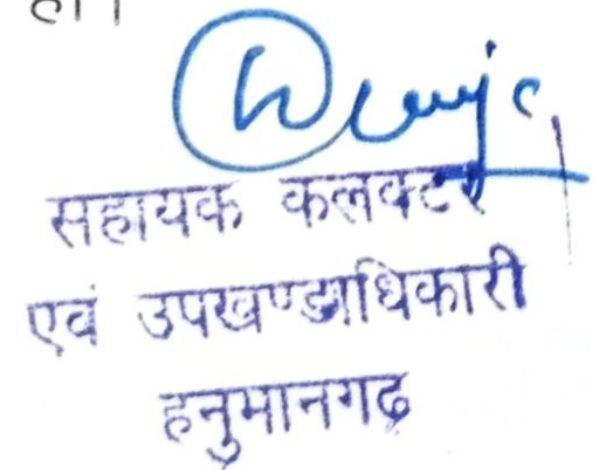 हो।
सहायक कलक्टर
एवं उपखण्डाधिकारी
हनुमानगढ